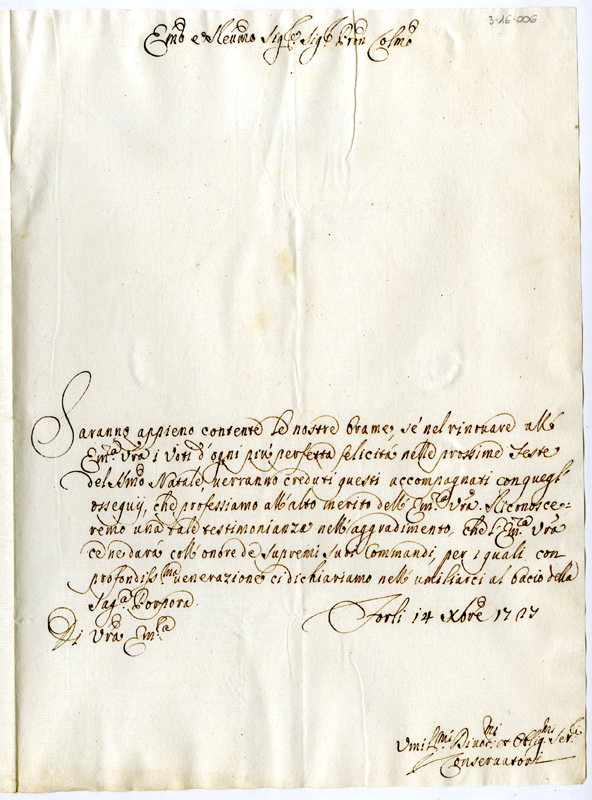 3-16-006
Emo e Revmo Sigre Sigr Pron Colmo
Saranno appieno contente le nostre brame, se nel rinovare all'
Emza Vra i voti d'ogni più perfetta felicità nelle prossime Feste
del Smo Natale, verranno creduti questi accompagnati con quegl'
ossequij, che professiamo all'alto merito dell'Emza Vra. Riconosce=
remo una tale testimonianza nell'aggradimento, che l'Emza Vra
ce ne darà coll'onore de supremi suoi Commandi, per i quali con
profondissma venerazione ci dichiariamo nell'umiliarci al bacio della
Saga Porpora.
Forlì 14 Xbre 1727
Di Vra Emza
Vmilmi Divotmi et Obligmi Seri
Conservatori